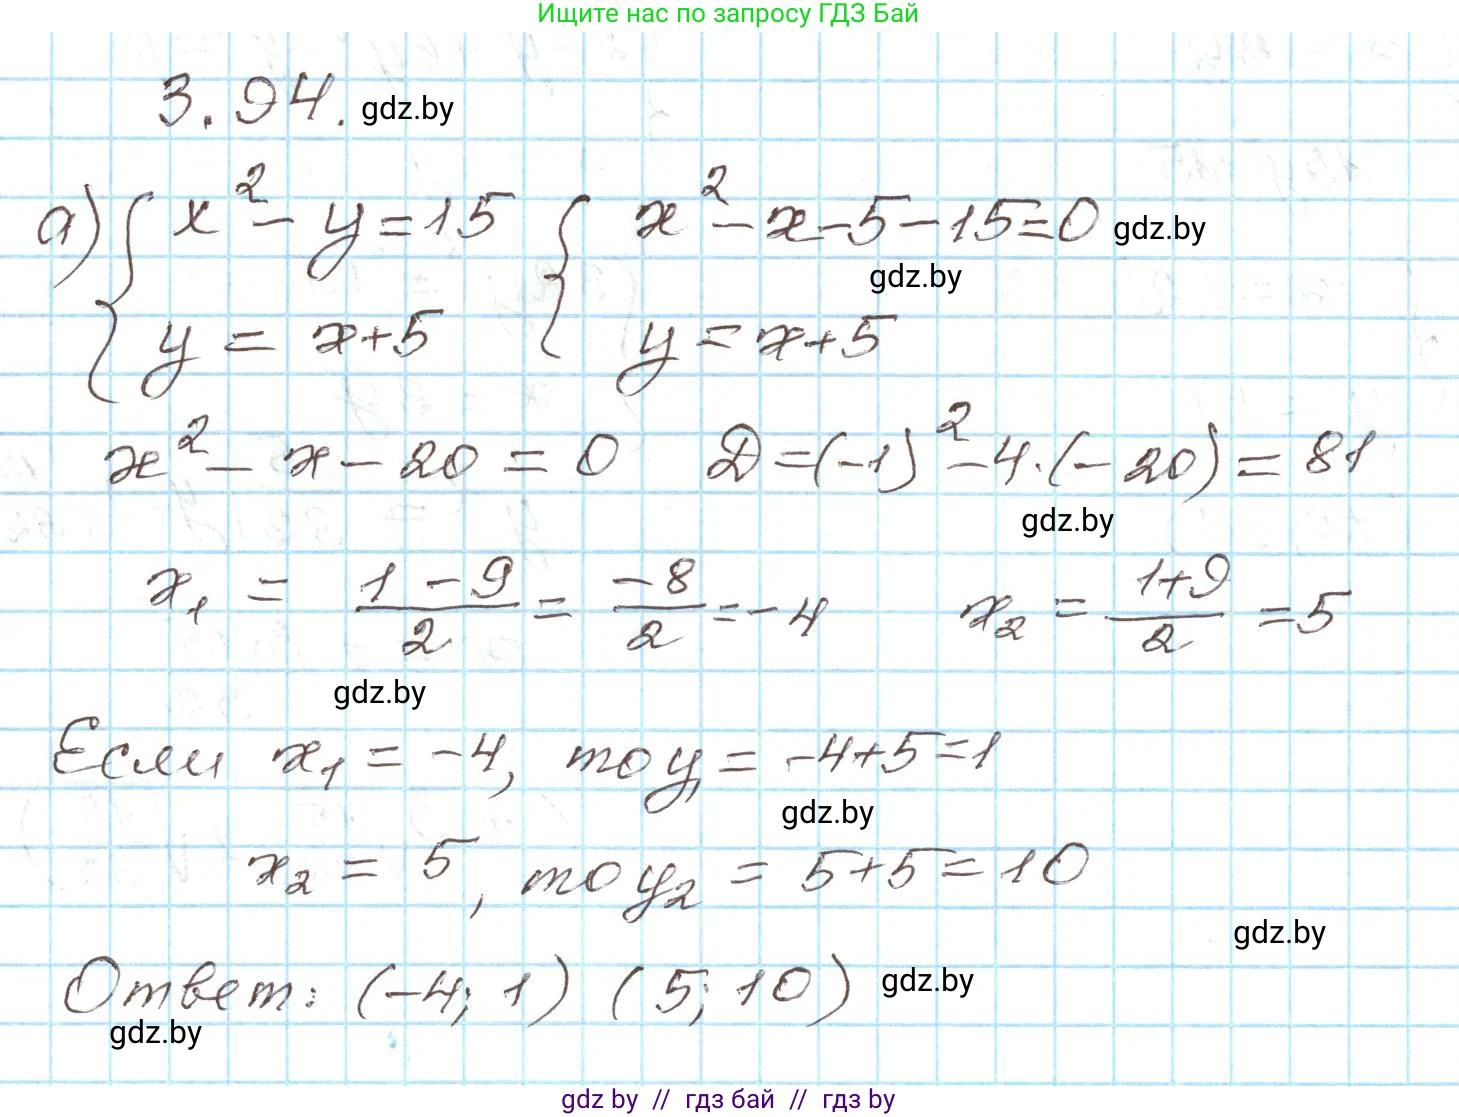 Ищите нас по запросу ГДЗ Бай
3.94. gdz.by
а) { x² - y = 15 { x² - x - 5 - 15 = 0 gdz.by
gdz.by
y = x+5 y = x+5
x² - x - 20 = 0 D = (-1)² - 4·(-20) = 81
gdz.by
x₁ = (1 - 9)/2 = -8/2 = -4 x₂ = (1+9)/2 = 5
gdz.by
Если x₁ = -4, то y₁ = -4+5=1
gdz.by
x₂ = 5, то y₂ = 5+5=10
gdz.by
Ответ: (-4; 1) (5; 10) gdz.by
gdz.by
gdz by // гдз бай // гдз by